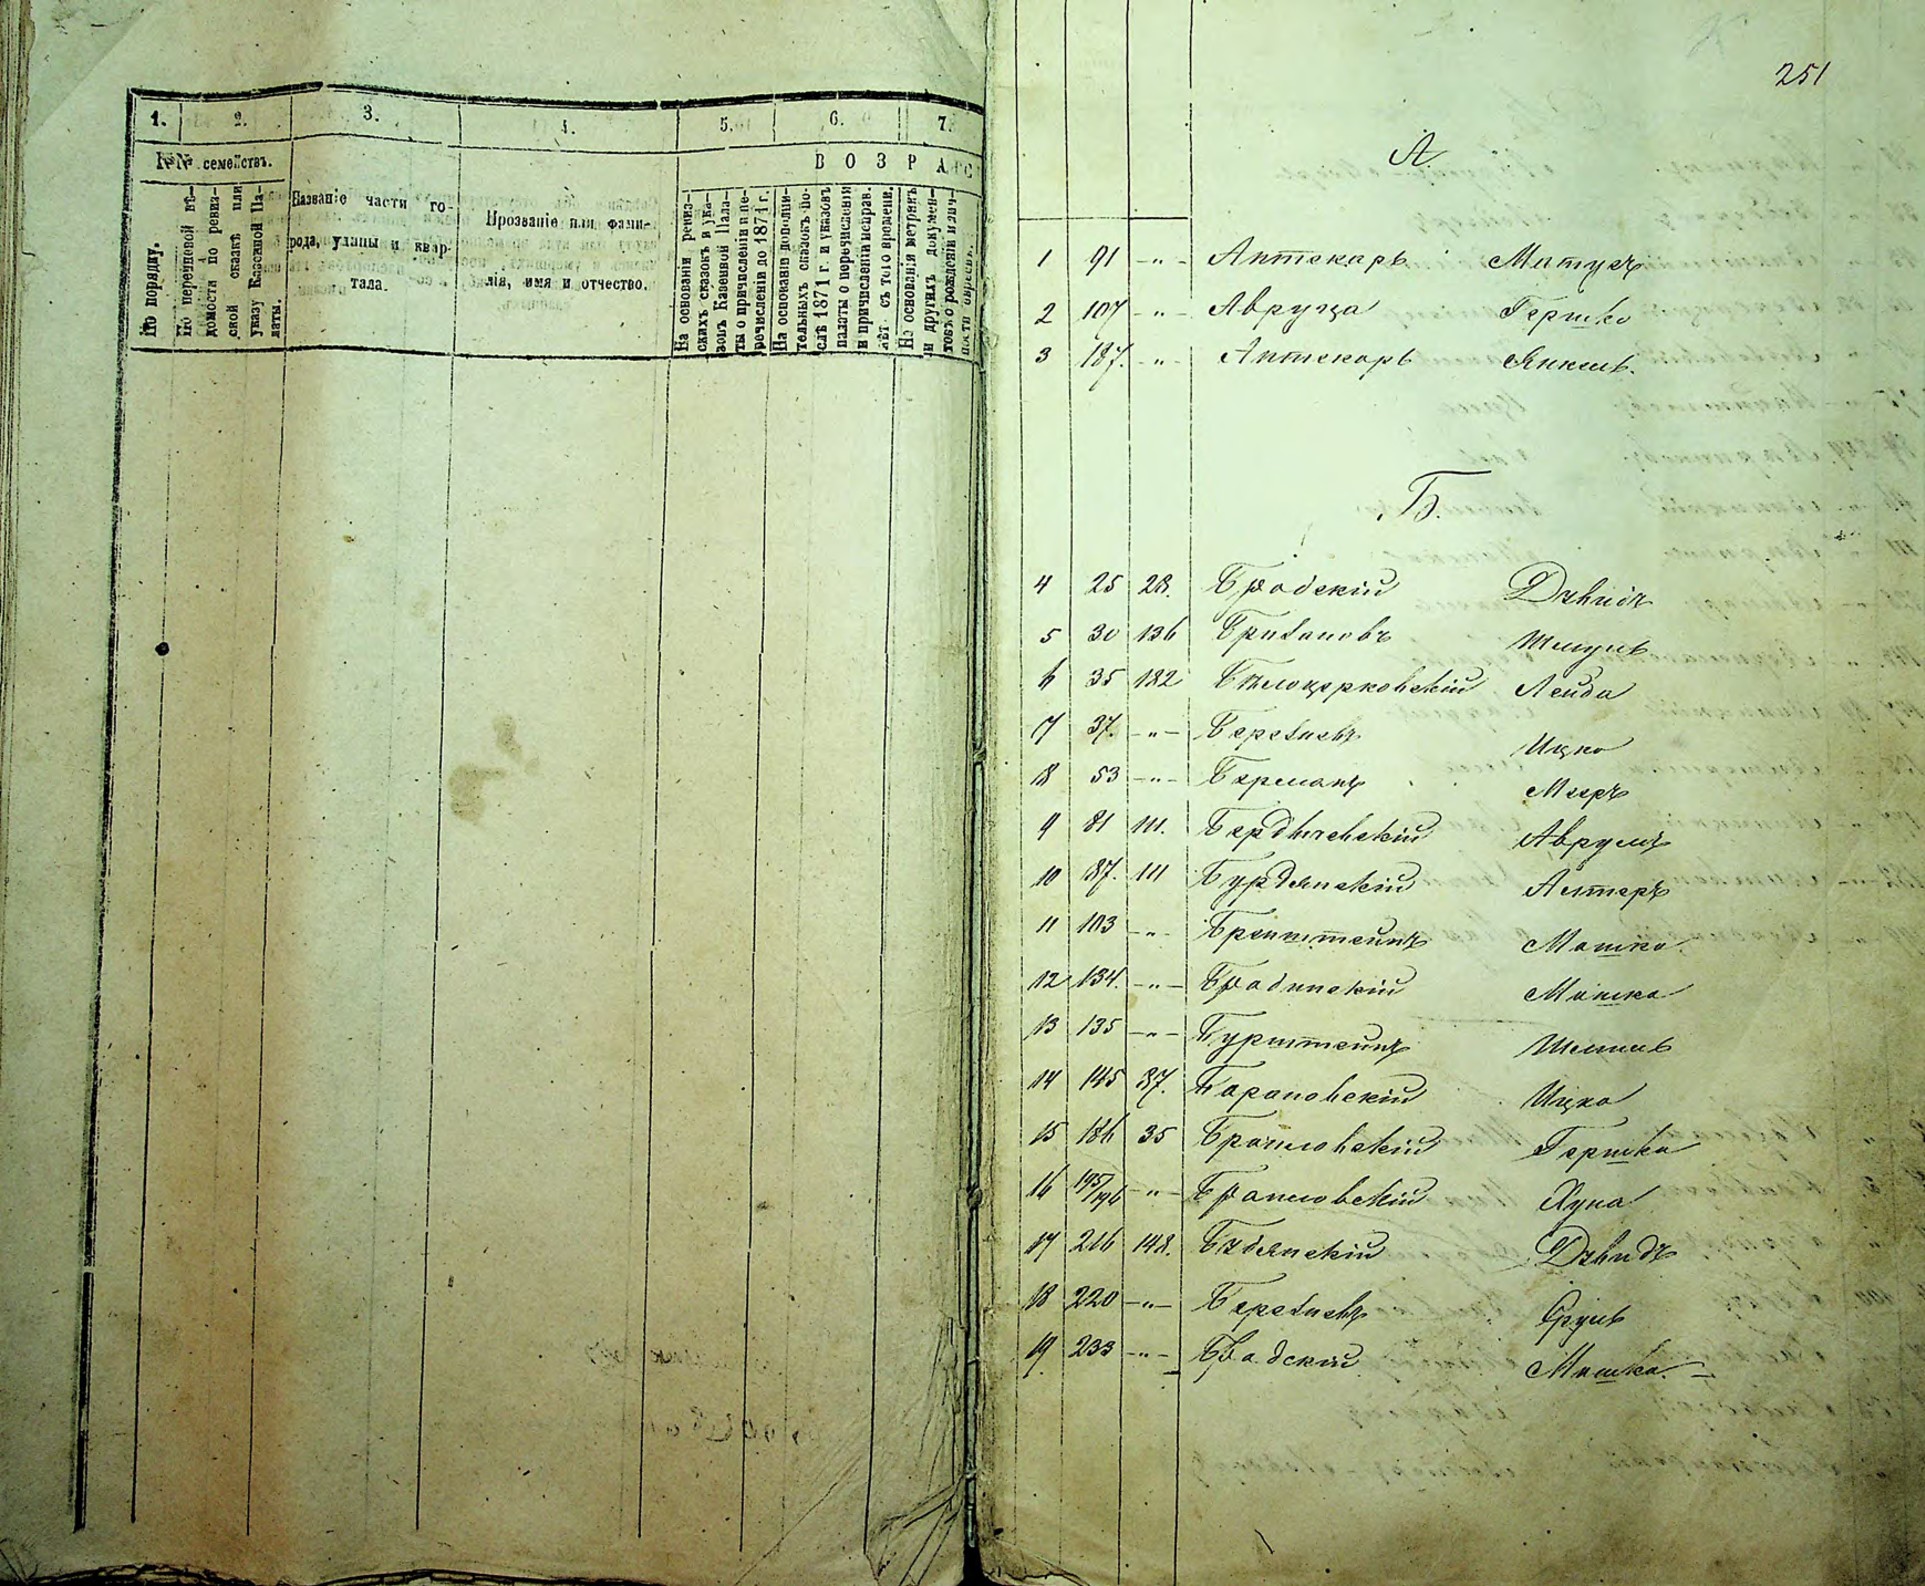 1. 2. 3. 4. 5. 6. 7.
№№ семействъ.
ВОЗРАС
По порядку.
По перечневой вѣ-
домости по ревиз-
ской сказкѣ или
указу Казенной Па-
латы.
Названіе части го-
рода, улицы и квар-
тала.
Прозваніе или фами-
лія, имя и отчество.
На основаніи ревиз-
скихъ сказокъ и ука-
зовъ Казенной Пала-
ты о причисленіи и пе-
речисленіи до 1871 г.
На основаніи дополни-
тельныхъ сказокъ по-
слѣ 1871 г. и указовъ
палаты о перечисленіи
и причисленіи исправ.
лѣт. съ того времени.
На основаніи метрикъ
и другихъ докумен-
товъ о рожденіи и явч-
251
А.
1 91 -"- Аптекарь Матусъ
2 107 -"- Авруца Гершко
3 187. -"- Аптекарь Янкель.
Б.
4 25 28. Бродскій Дувидъ
5 30 136 Бривановъ Шмуль
6 35 182 Бѣлоцерковскій Лейда
7 37. -"- Березневъ Ицко
8 53 -"- Берманъ Мееръ
9 81 111. Бердичевскій Аврумъ
10 87. 111 Бурдянскій Алтеръ
11 103 -"- Бренштейнъ Мошко
12 134. -"- Бродинскій Мошко
13 135 -"- Бурштейнъ Шлема
14 145 87. Барановскій Ицко
15 186 35 Брацловскій Гершко
16 195/196 -"- Брацловскій Хуна
17 216 148. Будянскій Дувидъ
18 220 -"- Березневъ Сруль
19. 233 -"- Бродскій Мошко.